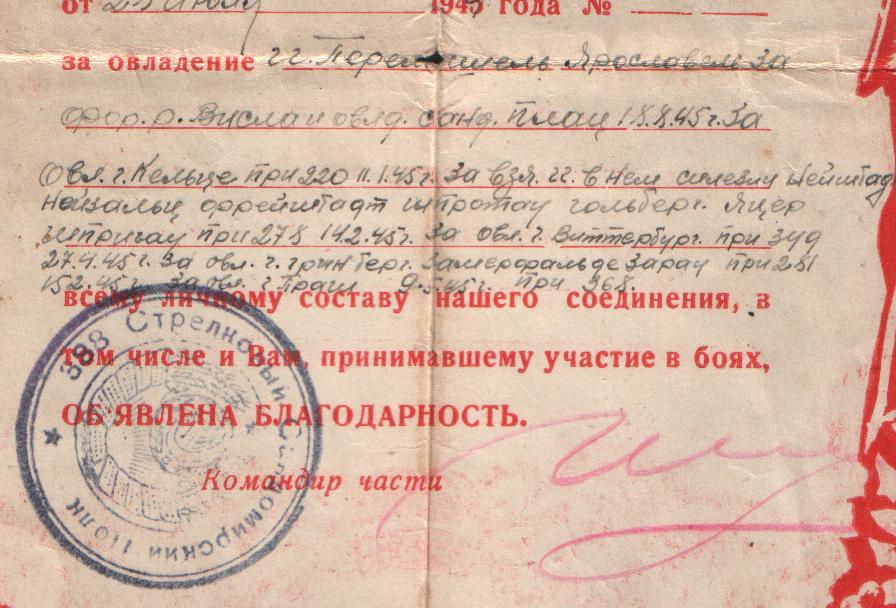 от 1945 года №
за овладение г.г. Перемышель Ярославем За
фор. р. Висла и овлд. банд. плац 18.8.45г. За
Овл. г. Кельце при 220 11.1.45г. За взя. г.г. в нем силезии Нейштад
Нойзальц фрейштадт шпротау гольберг. Яцер
при 278 14.2.45г. За овл. г. Виттерберг. при
27.4.45г. За овл. г. гринберг. Замерфальде Зарау при 281
15.2.45г. За овл. г. Праги 9.5.45г. при 368.
всему личному составу нашего соединения, в
том числе и Вам, принимавшему участие в боях,
ОБ'ЯВЛЕНА БЛАГОДАРНОСТЬ.
Командир части
383 Стрелковый Сандомирский Полк